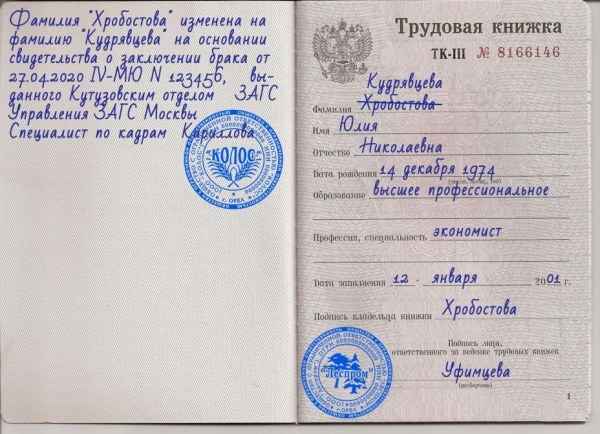 Фамилия "Хробостова" изменена на
фамилию "Кудрявцева" на основании
свидетельства о заключении брака от
27.04.2020 IV-МЮ N 123456, вы-
данного Кутузовским отделом ЗАГС
Управления ЗАГС Москвы
Специалист по кадрам Кириллова
"КОЛОС"
г. ОРВА
Трудовая книжка
ТК-III № 8166146
Кудрявцева
Фамилия Хробостова
Имя Юлия
Отчество Николаевна
Дата рождения 14 декабря 1974
Образование высшее профессиональное
Профессия, специальность экономист
Дата заполнения 12 - января 2001 г.
Подпись владельца книжки Хробостова
Подпись лица,
ответственного за ведение трудовых книжек
Уфимцева
(разборчиво)
"Леспром"
г. ОРВА
1